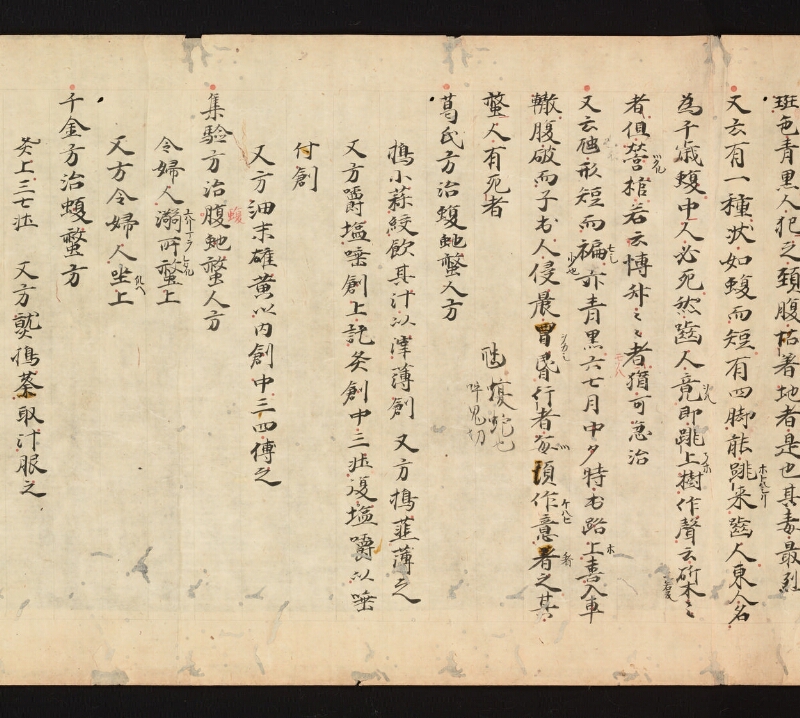 斑色青黒人犯之頚腹帖著地者是也其毒最烈
又云有一種状如蝮而短有四脚能跳来齧人東人名
為千歳蝮中人必死然齧人竟即跳上樹作聲云斫木〻
者但營棺若云博叔〻者猶可急治
又云虺形短而褊亦青黒六七月中夕特出路上喜入車
轍腹破而子出人侵晨冒昏行者每須作意看之其
螫人有死者
虺蝮蛇也
呼鬼切
葛氏方治蝮虵螫人方
擣小蒜絞飲其汁以滓薄創 又方擣薤薄之
又方嚼塩唾創上訖灸創中三壮復塩嚼以唾
付創
又方油末雄黄以内創中三四傅之
集験方治腹虵螫人方
蝮
令婦人溺所螫上
又方令婦人坐上
千金方治蝮螫方
灸上三七壮 又方熨擣蓼取汁服之